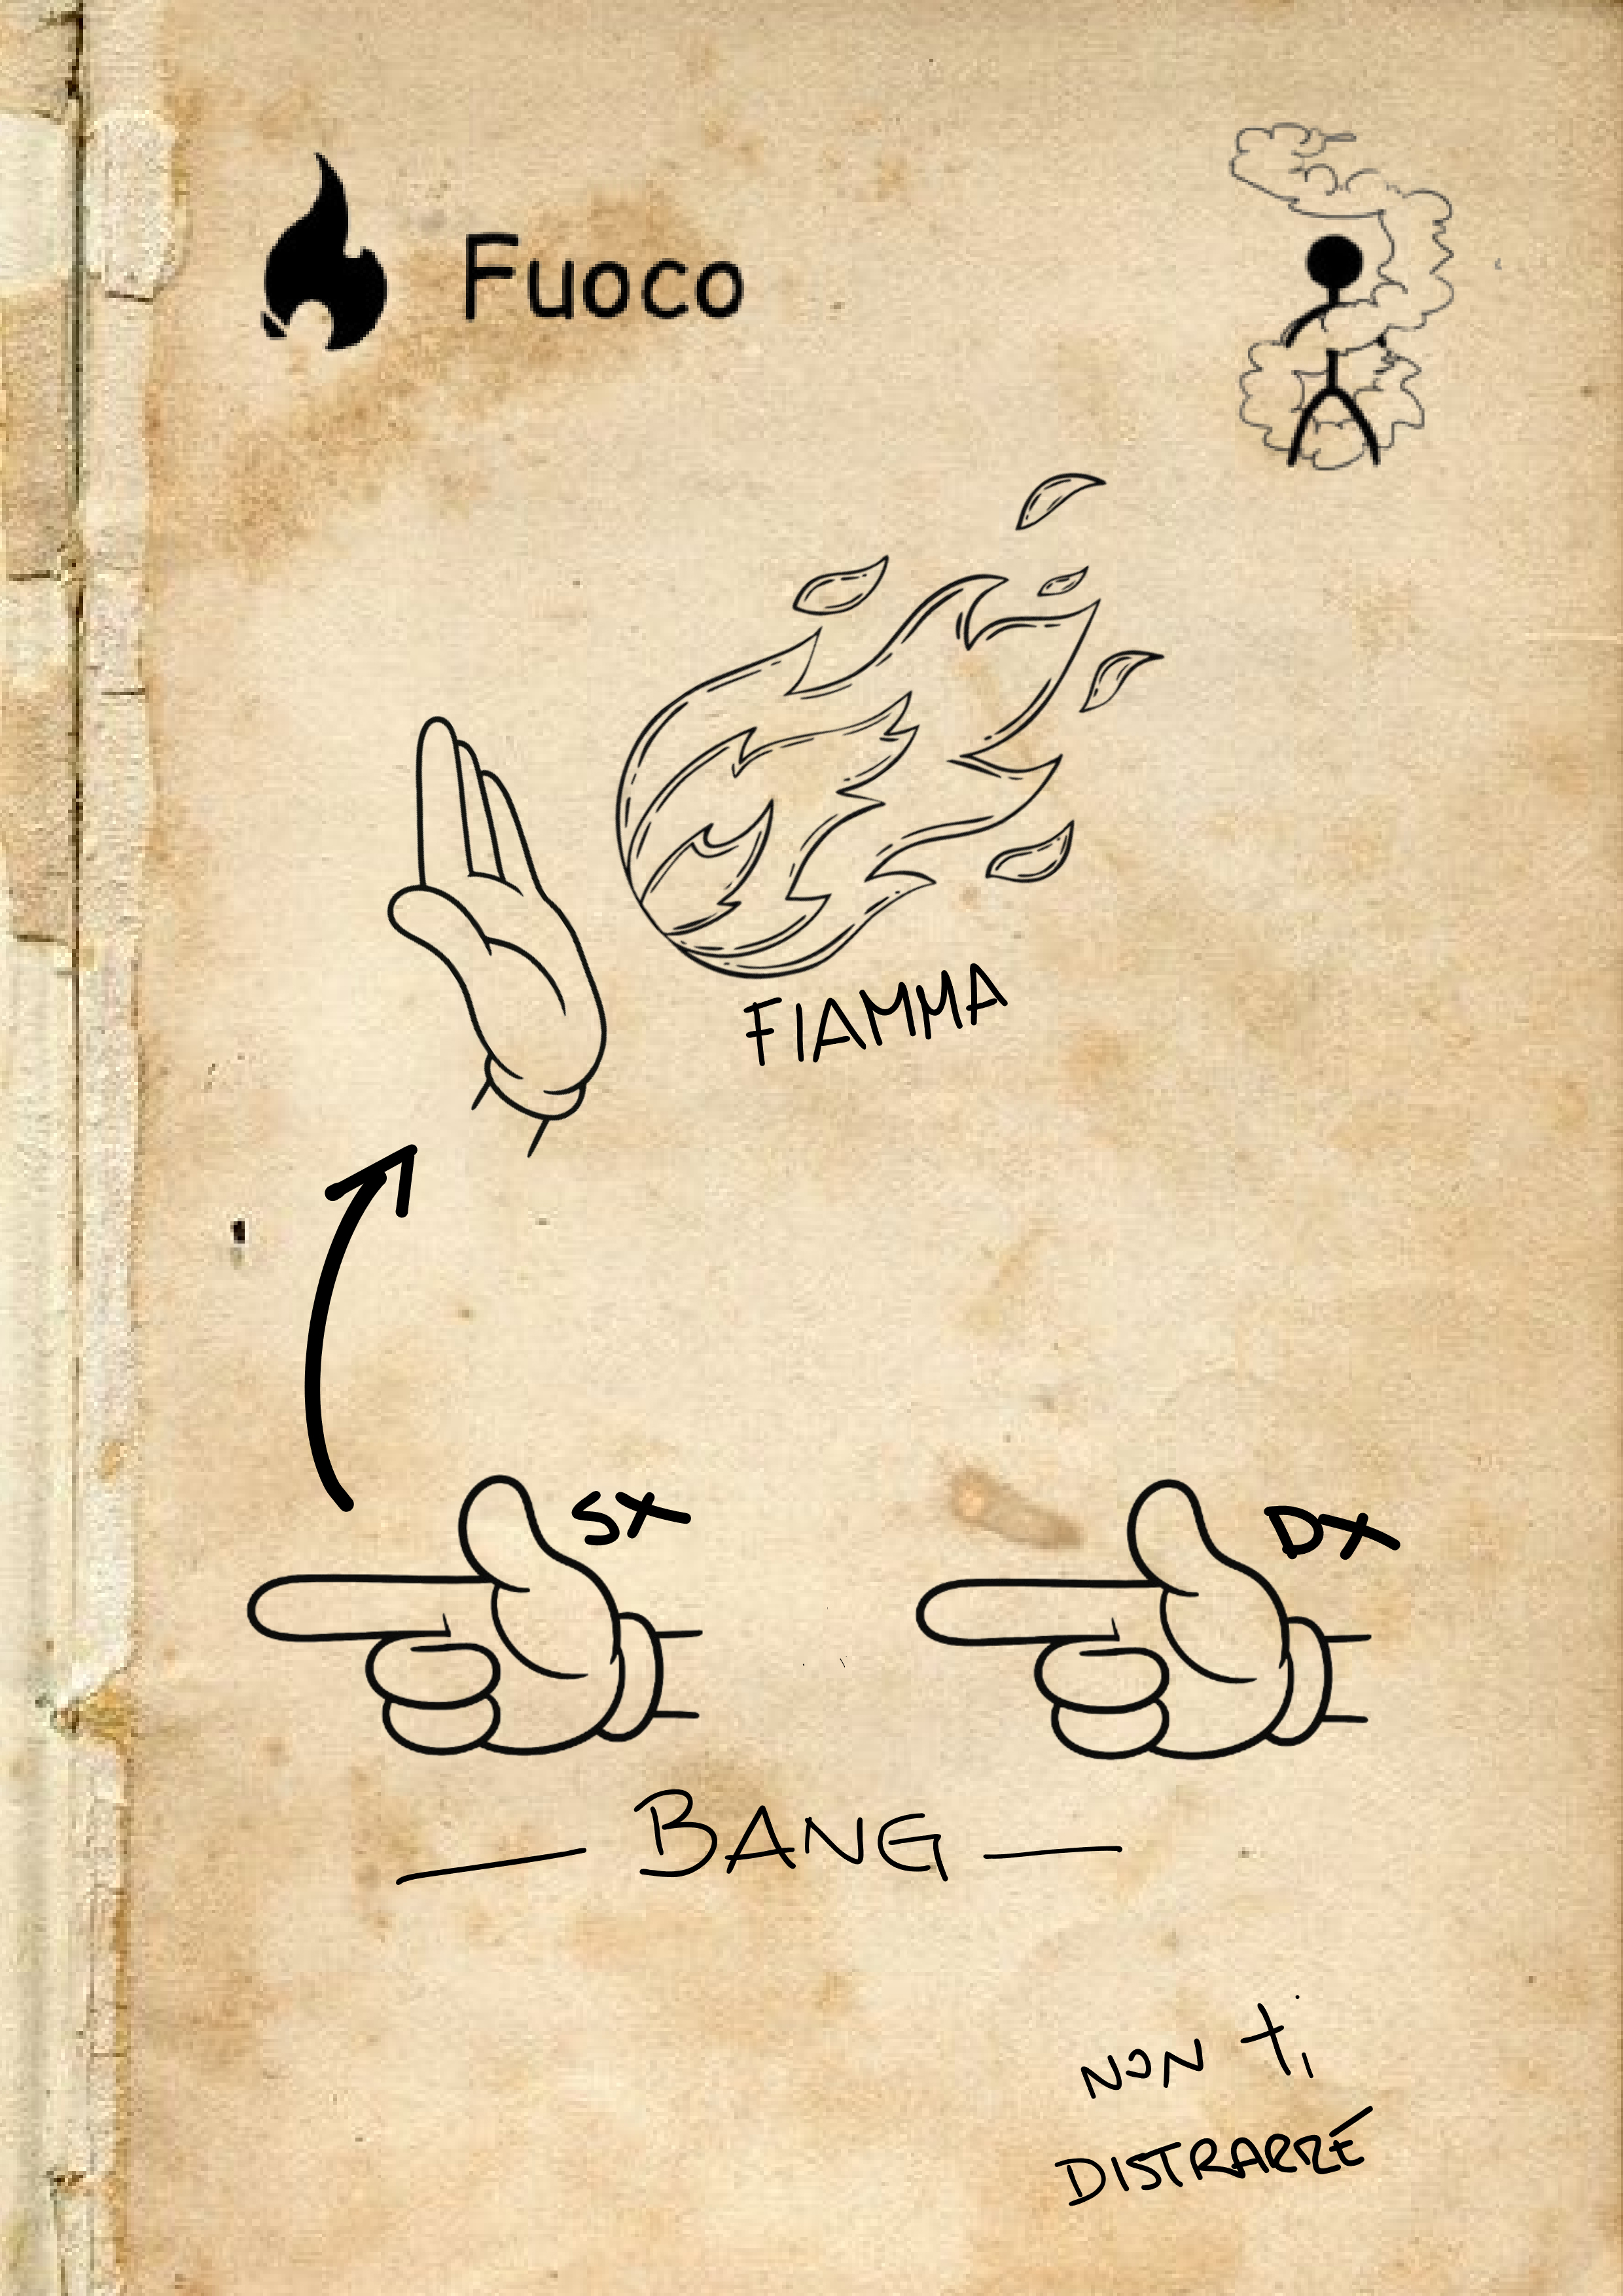 Fuoco
FIAMMA
SX
DX
BANG
NON ti
DISTRARRE